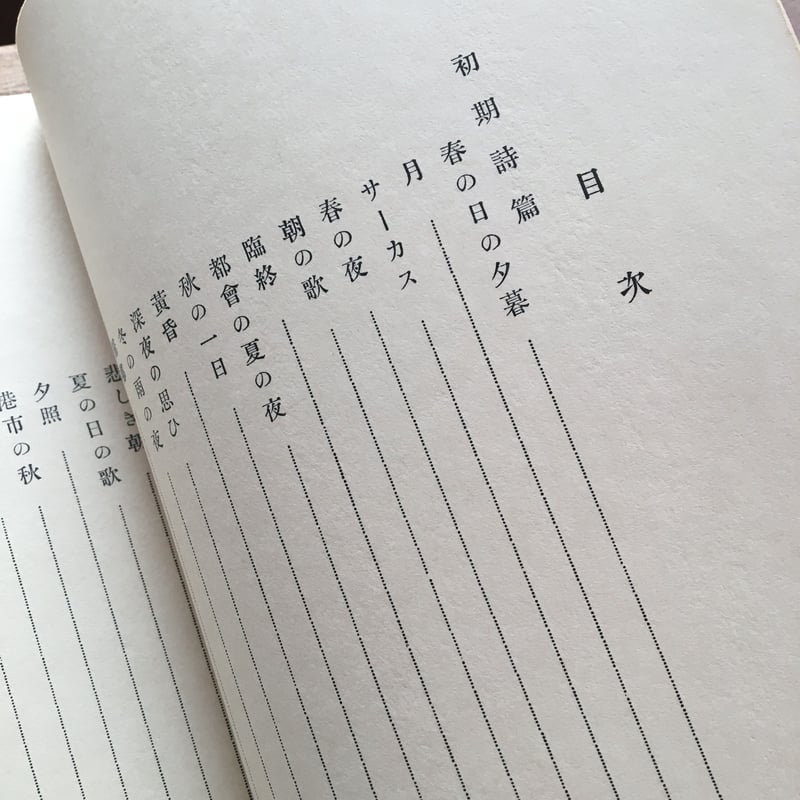 目次
初期詩篇
春の日の夕暮
月
サーカス
春の夜
朝の歌
臨終
都會の夏の夜
秋の一日
黃昏
深夜の思ひ
冬の雨の夜
悲しき朝
夏の日の歌
夕照
港市の秋